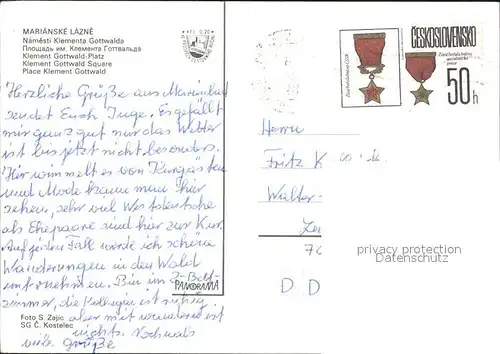 MARIÁNSKÉ LÁZNĚ
Náměstí Klementa Gottwalda
Площадь им. Клемента Готтвальда
Klement Gottwald-Platz
Klement Gottwald Square
Place Klement Gottwald
Kčs 0,20
Herzliche Grüße aus Marienbad
sendet Euch Inge. Es gefällt
mir ganz gut nur das Wetter
ist bis jetzt nicht besonders.
Hier wimmelt es von Kurgästen
und Mode kann man hier
sehen, sehr viel Westdeutsche
als Ehepaare sind hier zur Kur.
Auf jeden Fall werde ich schöne
Wanderungen in den Wald
unternehmen. Bin im 2-Bett-
zimmer, die Kollegin ist ruhig
aber mit wandern ist
nichts. Nochmals
viele Grüße
PANORAMA
Foto S. Zajíc
SG Č. Kostelec
ČESKOSLOVENSKO
50h
Herrn
Fritz K
Walter-
72
privacy protection
Datenschutz
D D